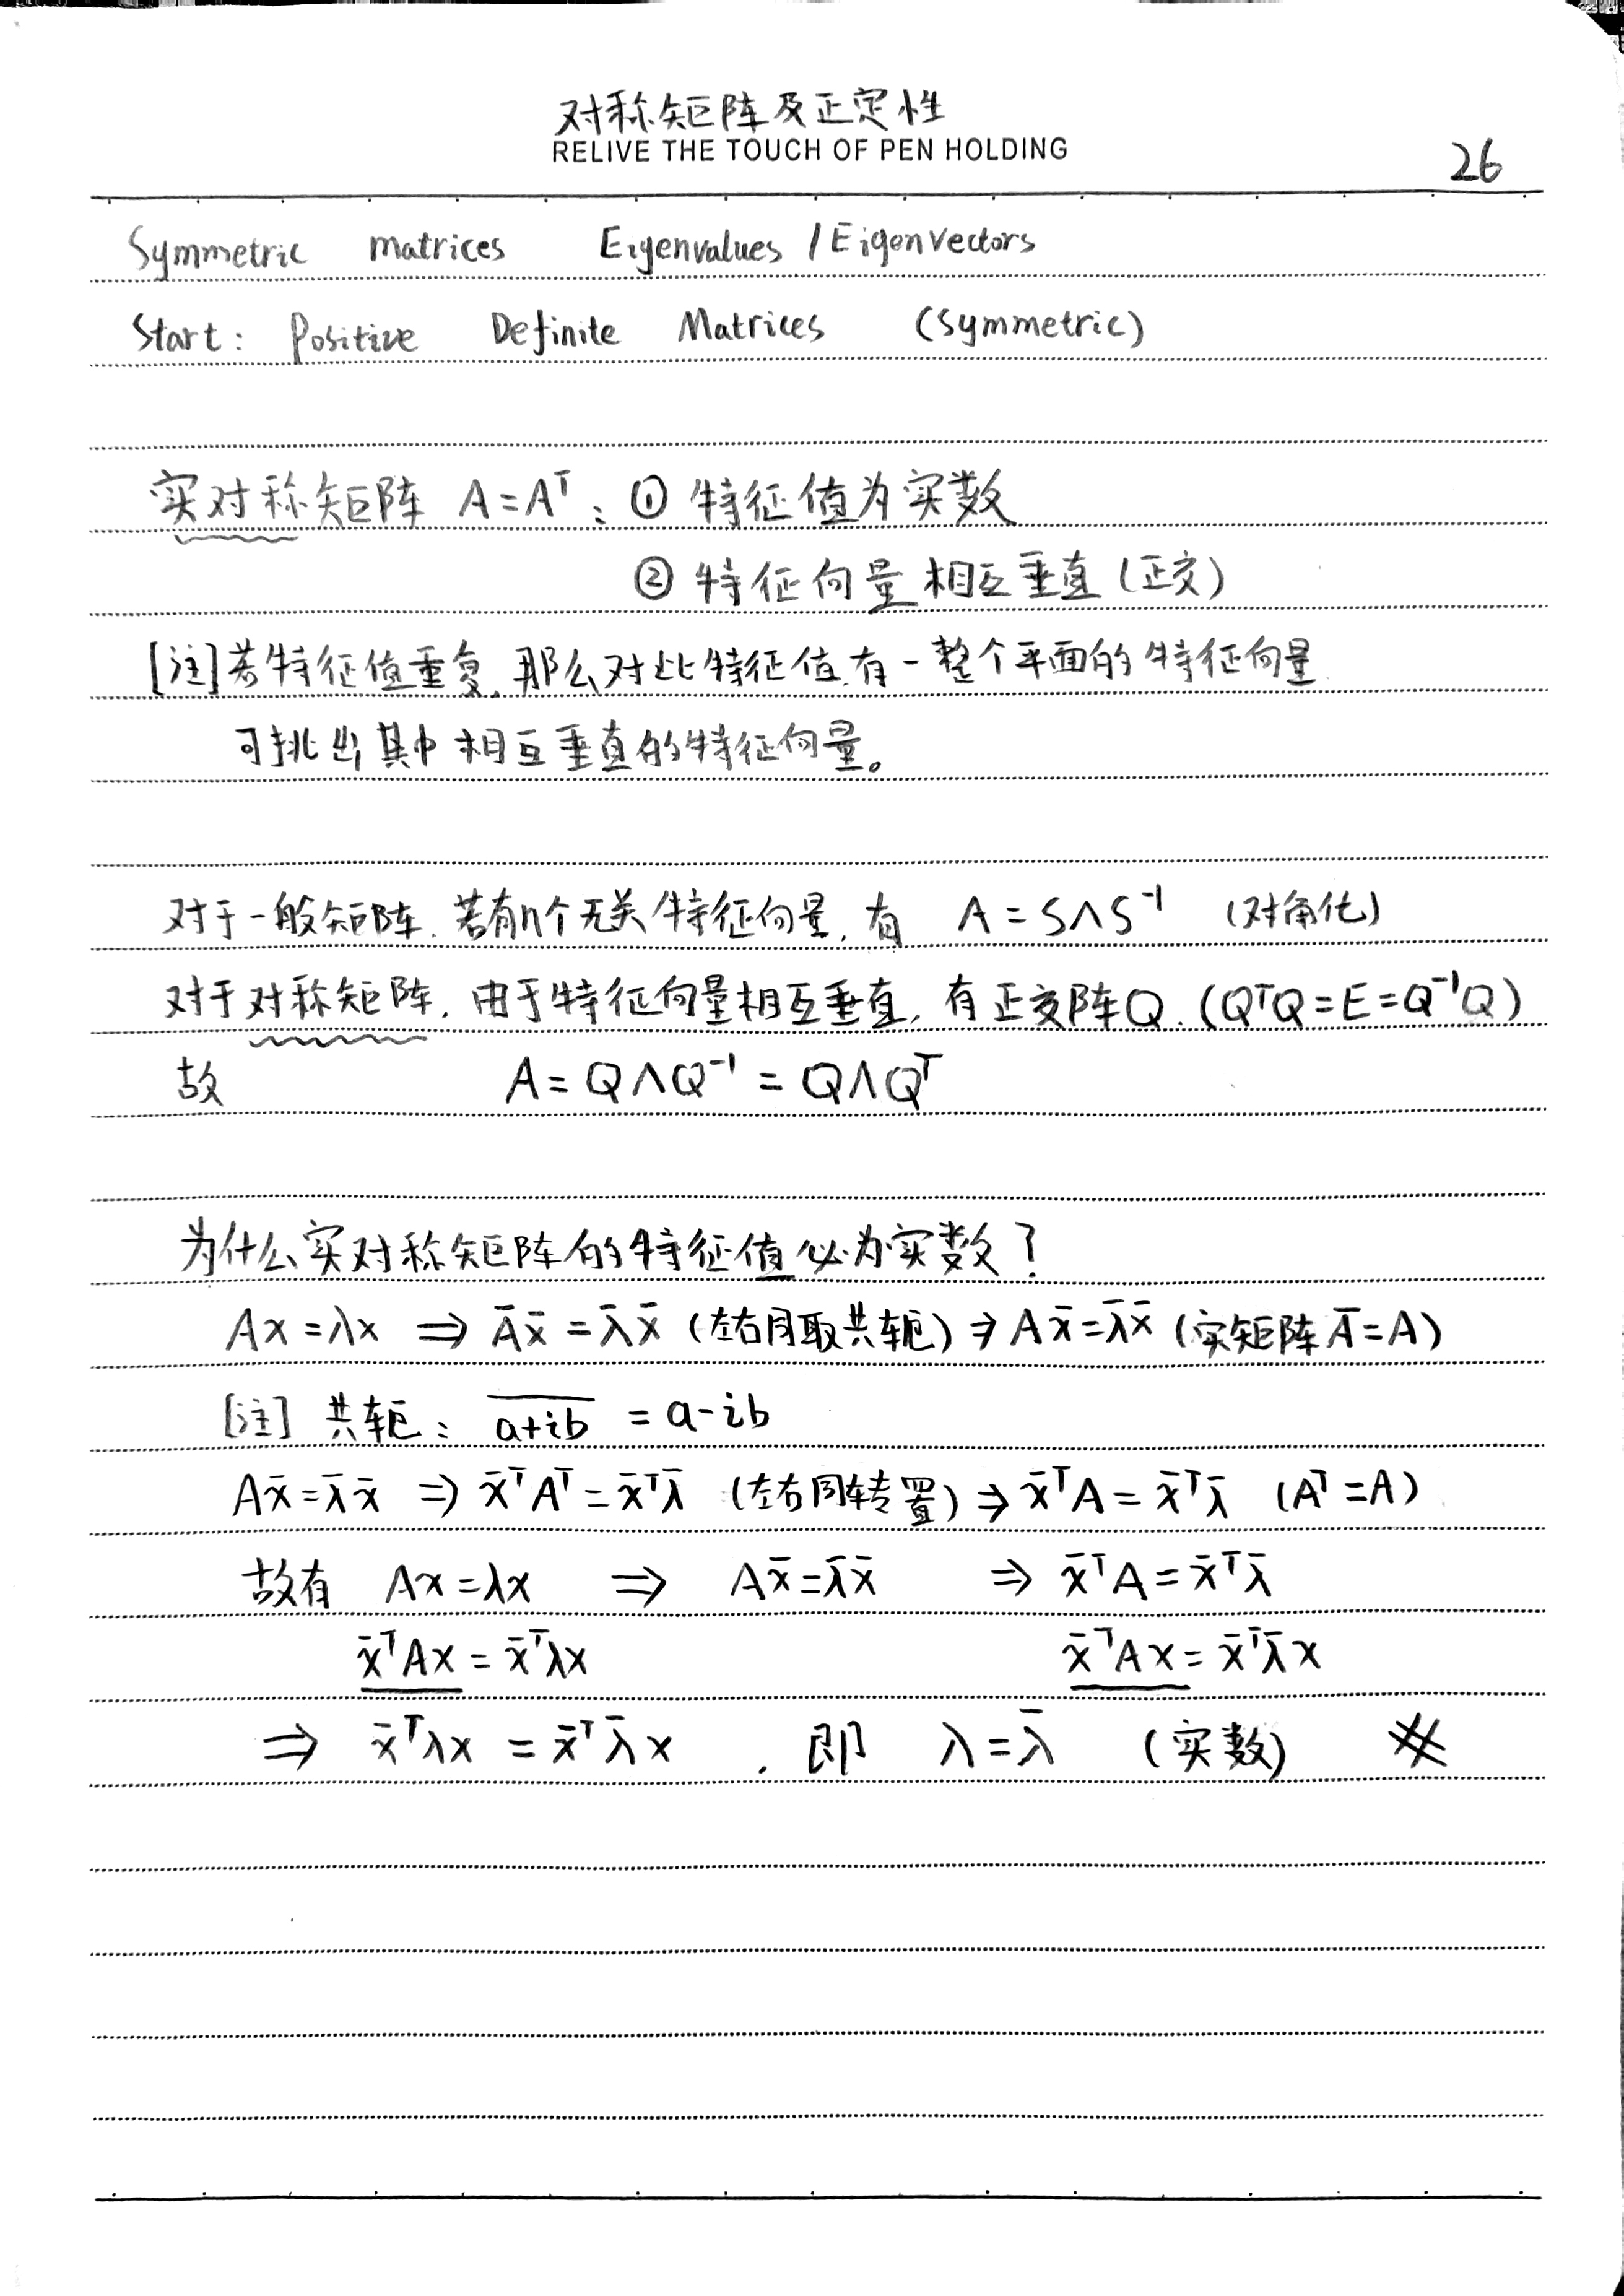 对称矩阵及正定性
RELIVE THE TOUCH OF PEN HOLDING
26
Symmetric matrices Eigenvalues / Eigenvectors
Start: Positive Definite Matrices (Symmetric)
实对称矩阵 A=Aᵀ: ① 特征值为实数
② 特征向量相互垂直(正交)
[注]若特征值重复,那么对此特征值有一整个平面的特征向量
可挑出其中相互垂直的特征向量。
对于一般矩阵,若有n个无关特征向量,有 A = SΛS⁻¹ (对角化)
对于对称矩阵,由于特征向量相互垂直,有正交阵Q.(QᵀQ=E=Q⁻¹Q)
故 A = QΛQ⁻¹ = QΛQᵀ
为什么实对称矩阵的特征值必为实数?
Ax=λx ⇒ A̅x̅=λ̅x̅ (左右同取共轭) ⇒ Ax̅=λ̅x̅ (实矩阵 A̅=A)
[注] 共轭: \overline{a+ib} = a-ib
Ax̅=λ̅x̅ ⇒ x̅ᵀAᵀ=x̅ᵀλ̅ (左右同转置) ⇒ x̅ᵀA=x̅ᵀλ̅ (Aᵀ=A)
故有 Ax=λx ⇒ Ax̅=λ̅x̅ ⇒ x̅ᵀA=x̅ᵀλ̅
x̅ᵀAx = x̅ᵀλx x̅ᵀAx = x̅ᵀλ̅x
⇒ x̅ᵀλx = x̅ᵀλ̅x . 即 λ=λ̅ (实数) #